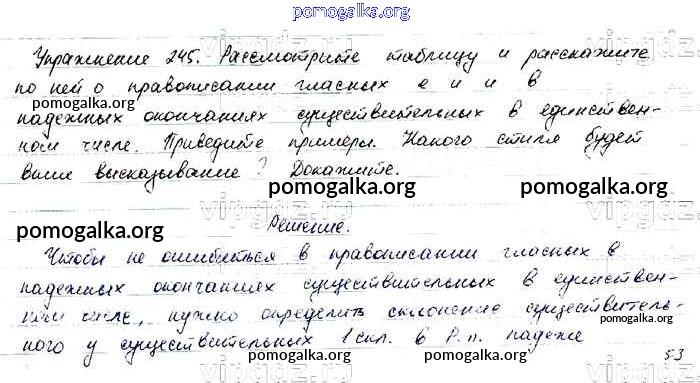 pomogalka.org
Упражнение 245. Рассмотрите таблицу и расскажите
по ней о правописании гласных е и и в
pomogalka.org pomogalka.org
падежных окончаниях существительных в единствен-
ном числе. Приведите примеры. Какого стиля будет
ваше высказывание? Докажите.
pomogalka.org pomogalka.org
Решение.
pomogalka.org
Чтобы не ошибиться в правописании гласных в
падежных окончаниях существительных в единствен-
ном числе, нужно определить склонение существитель-
pomogalka.org
ного у существительных 1 скл. в Р.п. падеже
pomogalka.org pomogalka.org
53